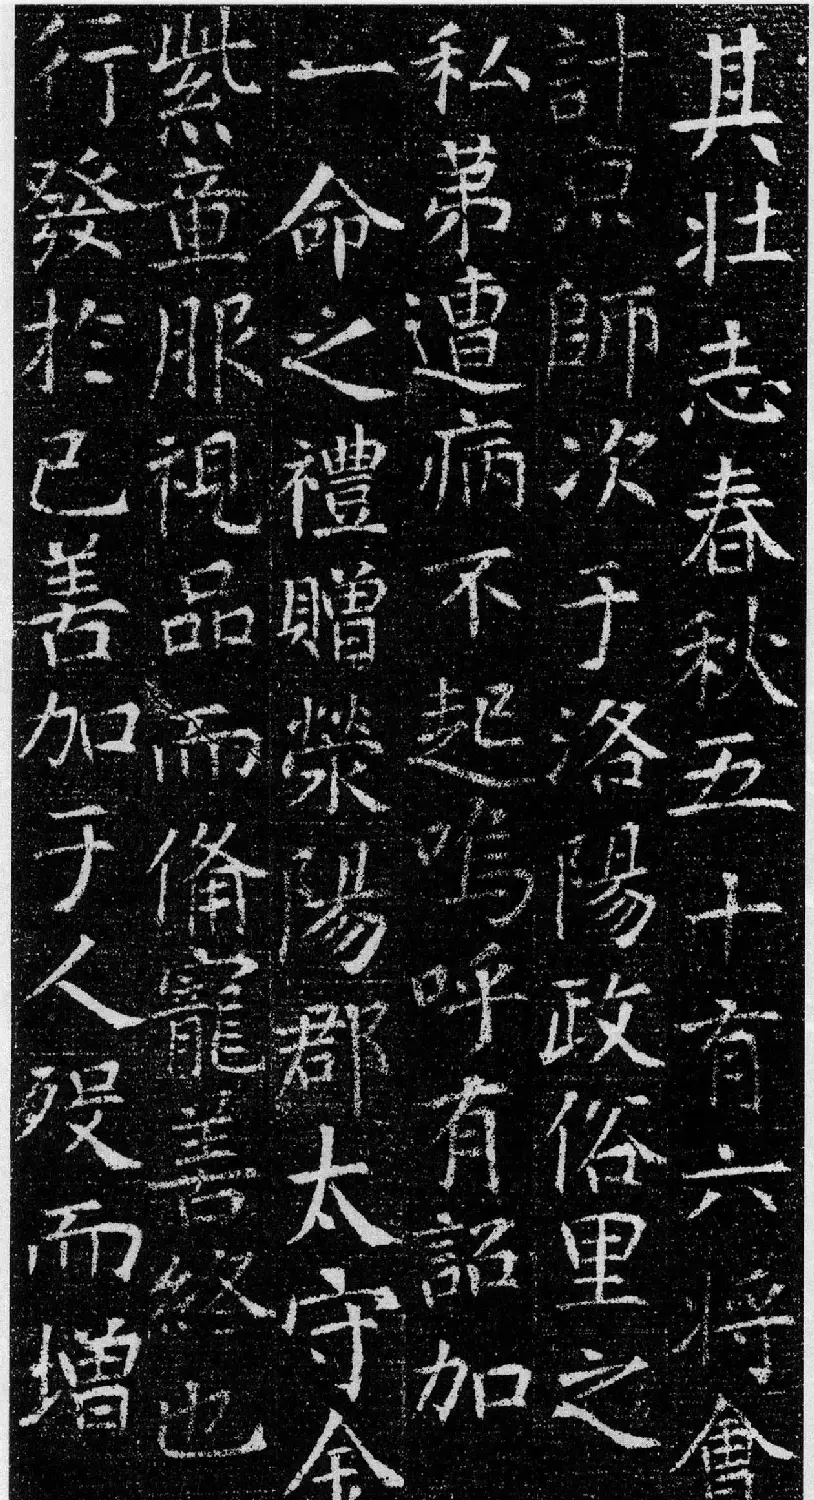 其壯志春秋五十有六將會
計京師次于洛陽政俗里之
私第遭病不起嗚呼有詔加
一命之禮贈滎陽郡太守金
紫童服視品而備寵善終也
行發於已善加于人歿而增